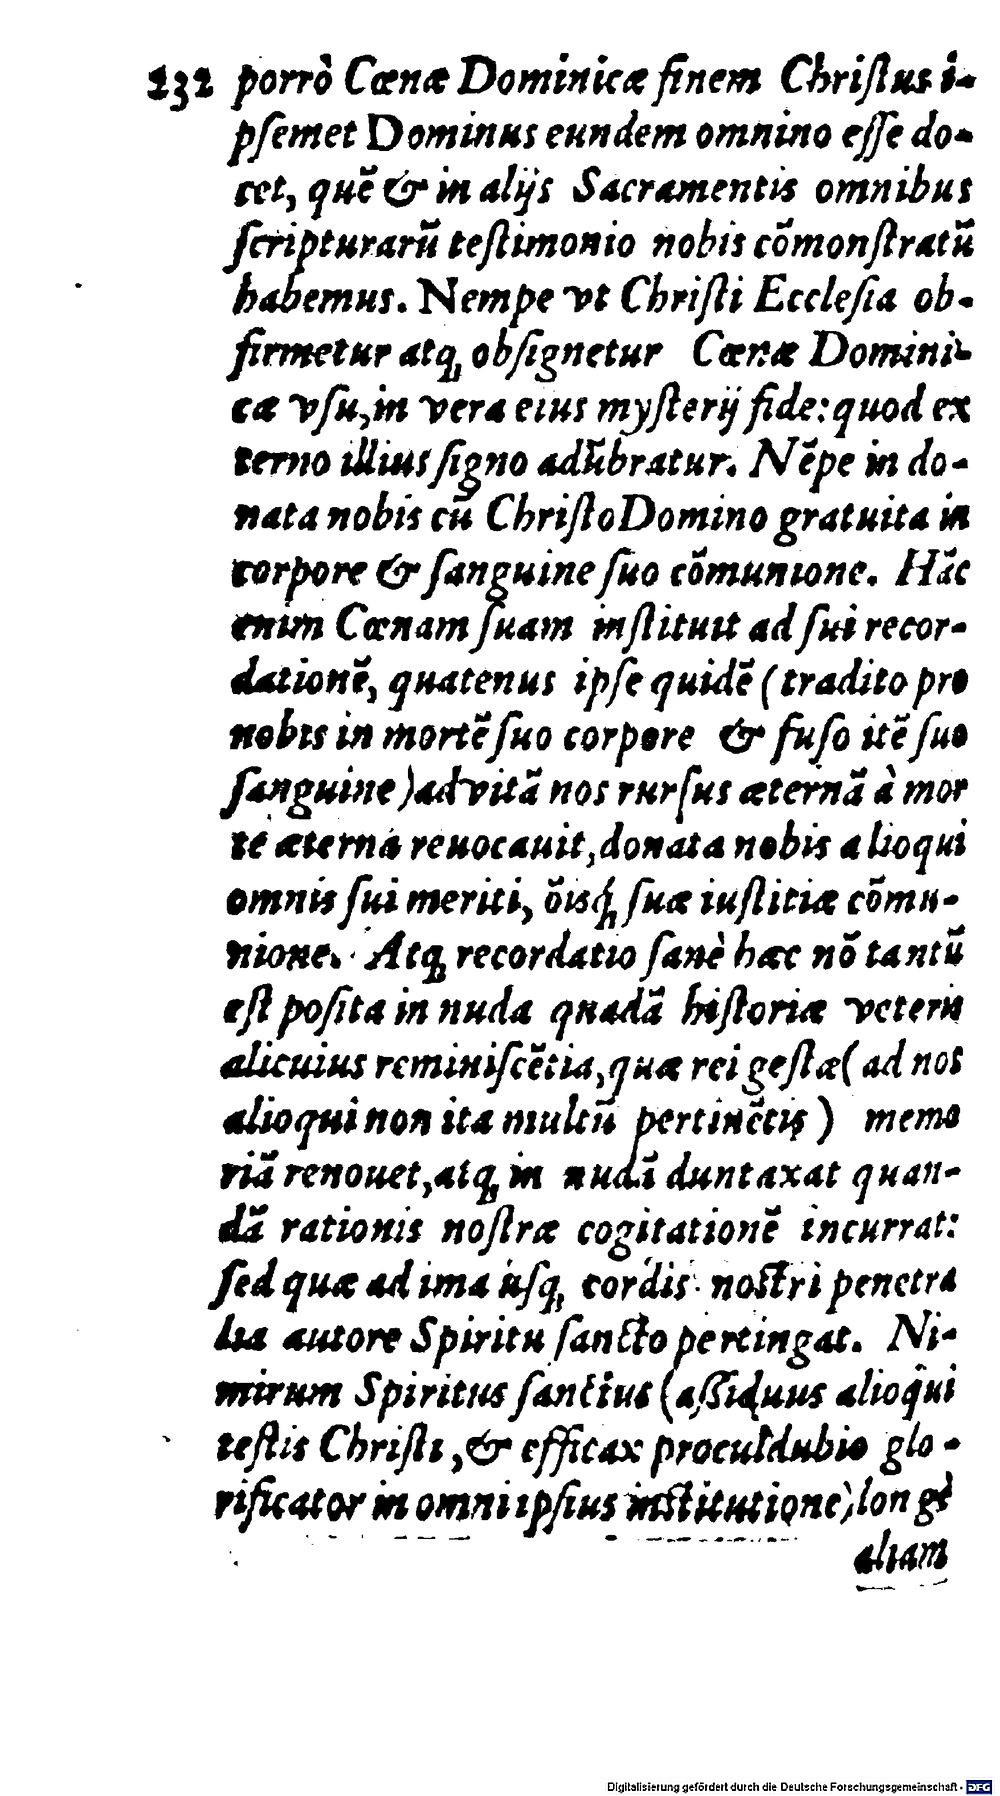 232 porrò Cœnæ Dominicæ finem Christus i-
pſemet Dominus eundem omnino eſſe do-
cet, quē & in alijs Sacramentis omnibus
ſcripturarū teſtimonio nobis cōmonſtratū
habemus. Nempe vt Chriſti Eccleſia ob-
firmetur atq; obſignetur Cœnæ Domini-
cæ vſu, in vera eius myſterij fide: quod ex
terno illius ſigno adūbratur. Nēpe in do-
nata nobis cū Chriſto Domino gratuita in
corpore & ſanguine ſuo cōmunione. Hāc
enim Cœnam ſuam inſtituit ad ſui recor-
dationē, quatenus ipſe quidē (tradito pro
nobis in mortē ſuo corpore & fuſo itē ſuo
ſanguine) ad vitā nos rurſus æternā à mor
te æterna reuocauit, donata nobis alioqui
omnis ſui meriti, ōisq́; ſuæ iuſtitiæ cōmu-
nione. Atq; recordatio ſanè hæc nō tantū
eſt poſita in nuda quadā hiſtoriæ veteris
alicuius reminiſcētia, quæ rei geſtæ (ad nos
alioqui non ita multū pertinētis) memo
riā renouet, atq; in nudā duntaxat quan-
dā rationis noſtræ cogitationē incurrat:
ſed quæ ad ima uſq; cordis noſtri penetra
lia autore Spiritu ſancto pertingat. Ni-
mirum Spiritus ſanctus (aſſiduus alioqui
teſtis Chriſti, & efficax proculdubio glo-
rificator in omni ipſius inſtitutione) longè
aliam
Digitalisierung gefördert durch die Deutsche Forschungsgemeinschaft - DFG